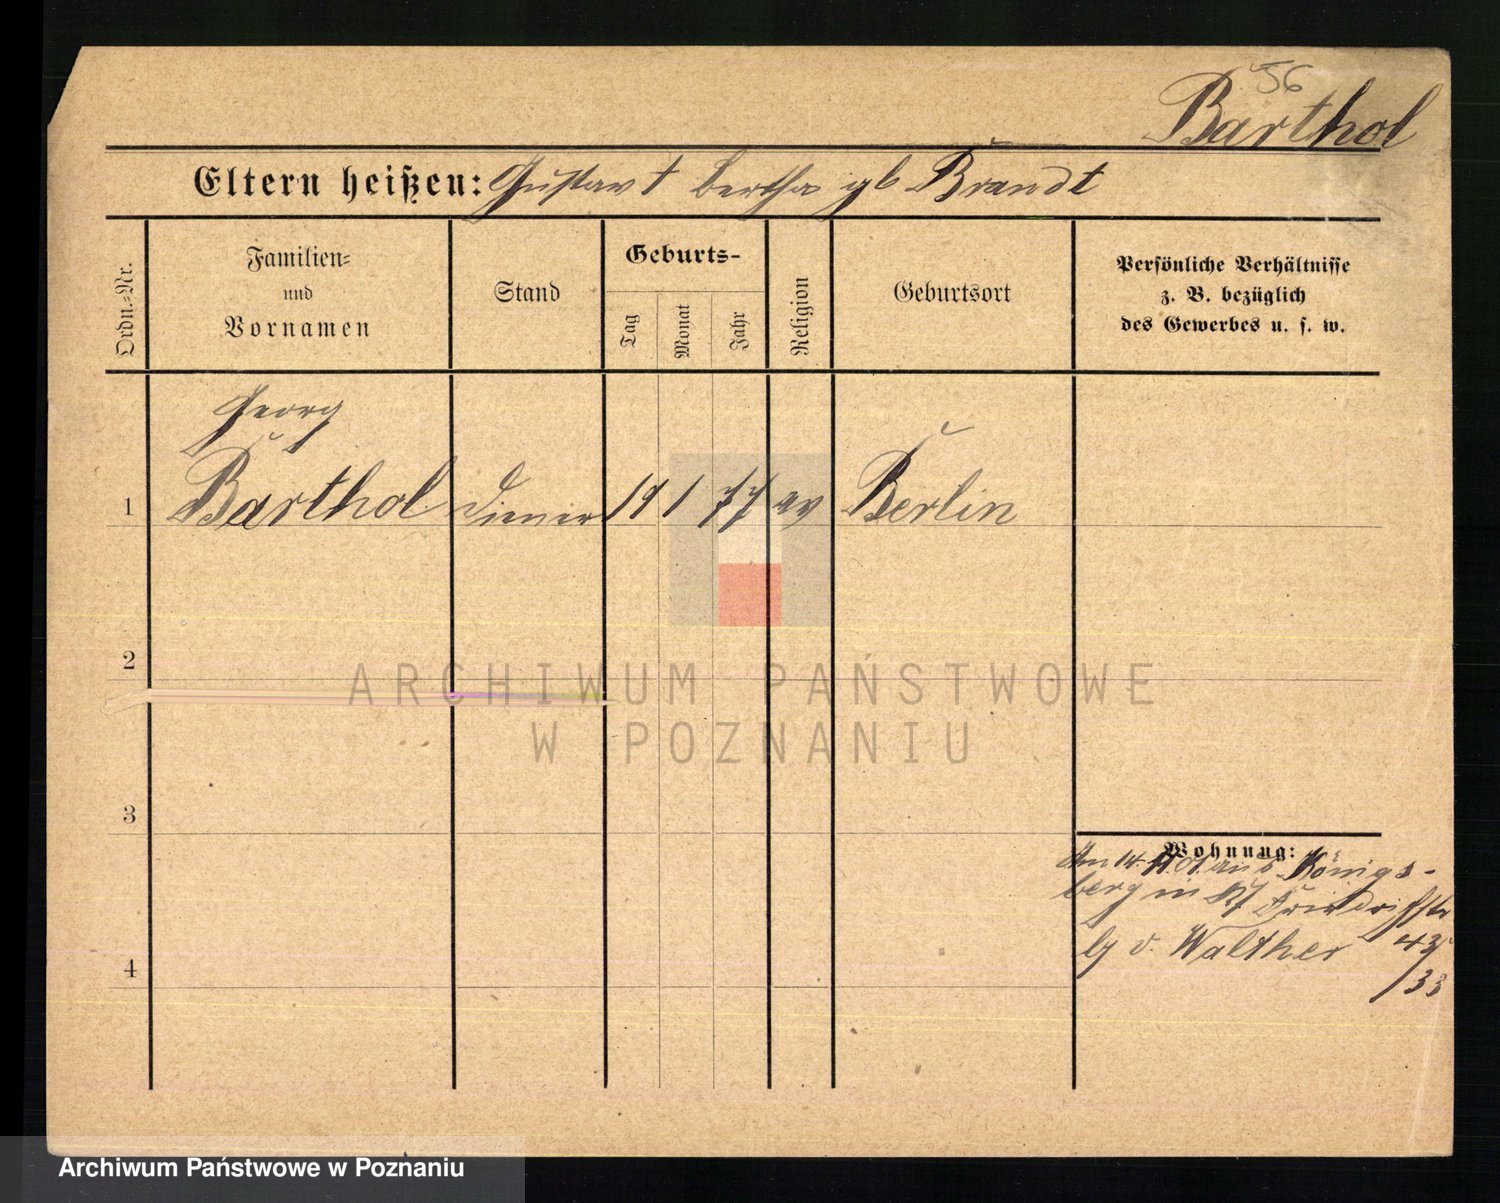 56
Barthol
Eltern heißen: Gustav † Bertha gb Brandt
Ordn.-Nr.
Familien-
und
Vornamen
Stand
Geburts-
Tag
Monat
Jahr
Religion
Geburtsort
Persönliche Verhältnisse
z. B. bezüglich
des Gewerbes u. s. w.
Georg
1 Barthol Diener 19 1 77 ev Berlin
2
ARCHIWUM PAŃSTWOWE
W POZNANIU
3
Wohnung:
Am 14. aus Königs-
berg in
v. Walther 43
4
/33
Archiwum Państwowe w Poznaniu